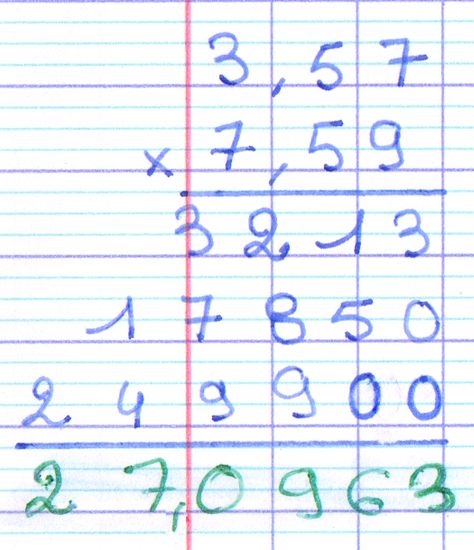 3,57
× 7,59
3213
17850
249900
27,0963